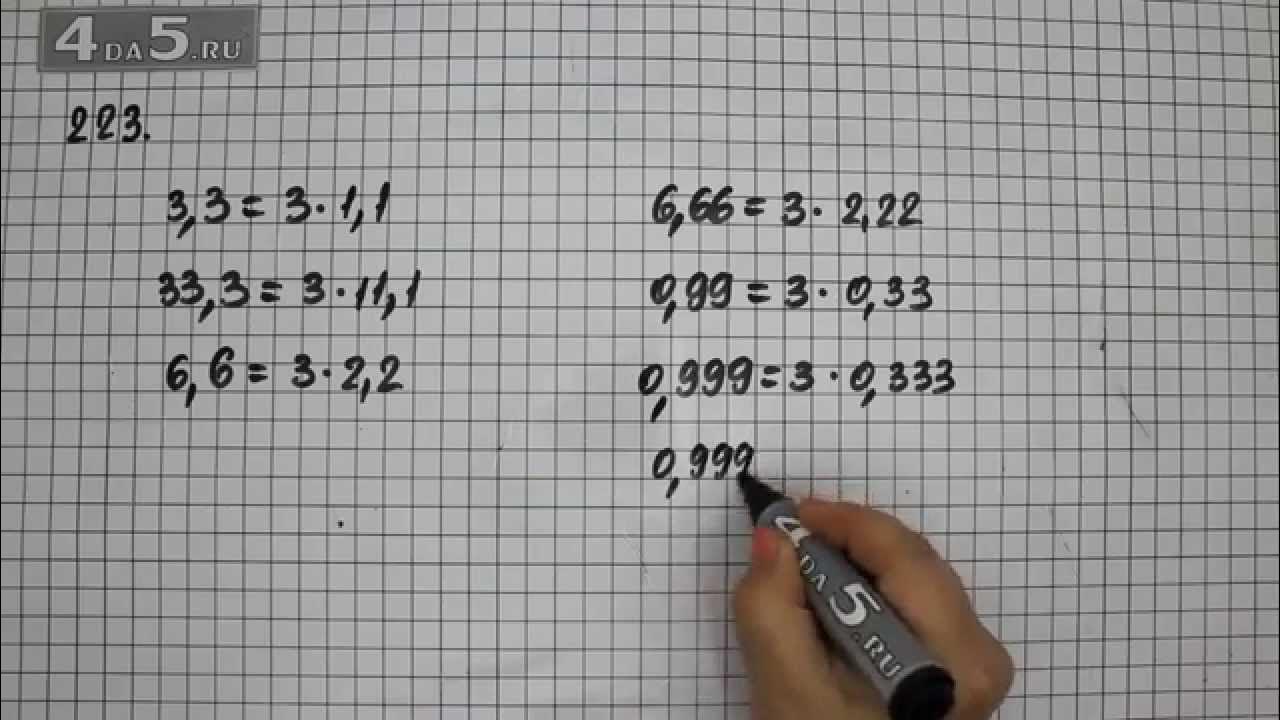 4DA5.RU
223.
3,3 = 3 · 1,1
33,3 = 3 · 11,1
6,6 = 3 · 2,2
6,66 = 3 · 2,22
0,99 = 3 · 0,33
0,999 = 3 · 0,333
0,999
4DA5.RU